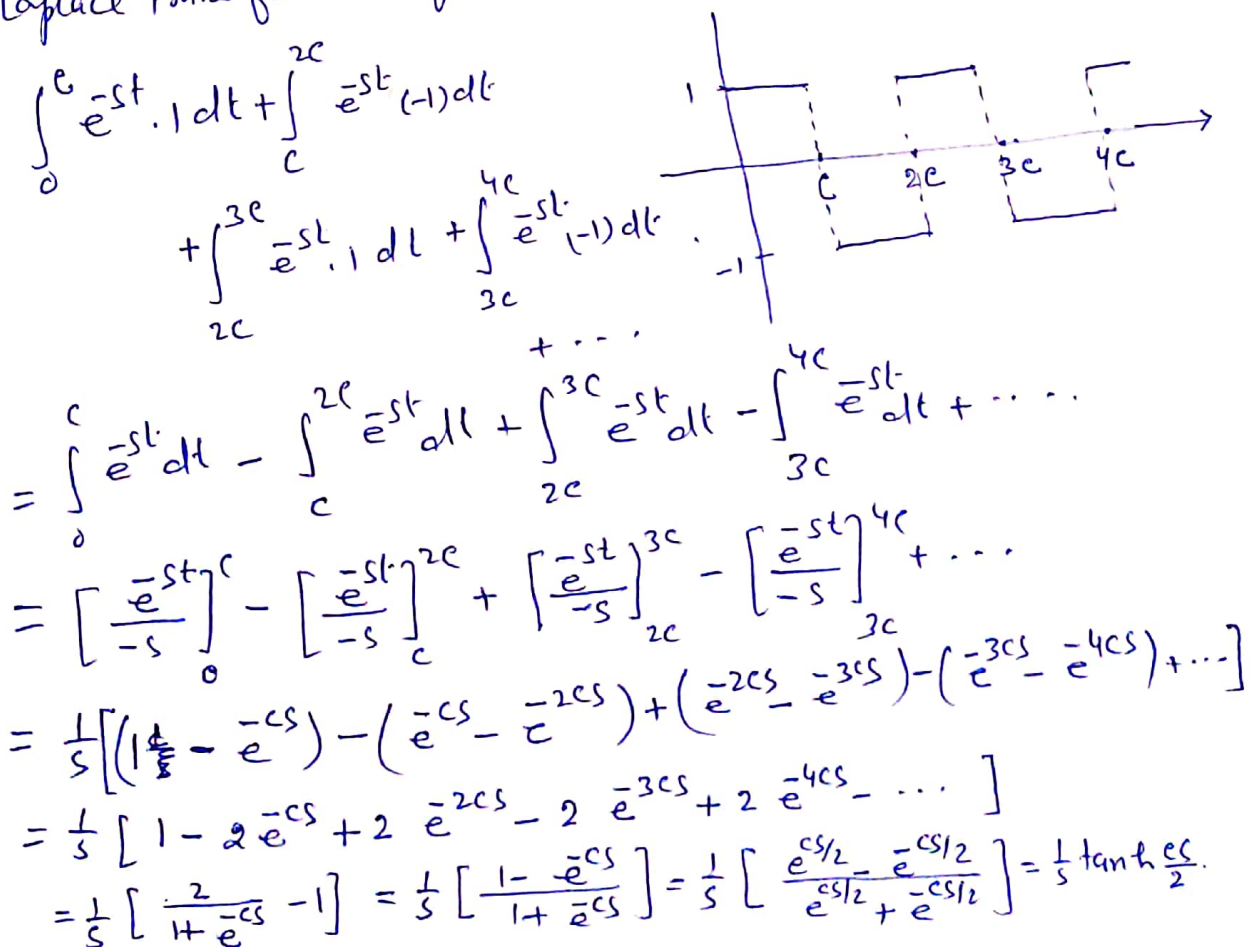 Laplace
∫₀ᶜ e^{-st} . 1 dt + ∫_c^{2c} e^{-st} (-1) dt
+ ∫_{2c}^{3c} e^{-st} . 1 dt + ∫_{3c}^{4c} e^{-st} (-1) dt .
+ ...
1
c 2c 3c 4c
-1
= ∫₀ᶜ e^{-st} dt - ∫_c^{2c} e^{-st} dt + ∫_{2c}^{3c} e^{-st} dt - ∫_{3c}^{4c} e^{-st} dt + .....
= [e^{-st}/-s]₀ᶜ - [e^{-st}/-s]_c^{2c} + [e^{-st}/-s]_{2c}^{3c} - [e^{-st}/-s]_{3c}^{4c} + ...
= 1/s [(1 - e^{-cs}) - (e^{-cs} - e^{-2cs}) + (e^{-2cs} - e^{-3cs}) - (e^{-3cs} - e^{-4cs}) + ...]
= 1/s [1 - 2 e^{-cs} + 2 e^{-2cs} - 2 e^{-3cs} + 2 e^{-4cs} - ...]
= 1/s [2/(1 + e^{-cs}) - 1] = 1/s [(1 - e^{-cs})/(1 + e^{-cs})] = 1/s [(e^{cs/2} - e^{-cs/2})/(e^{cs/2} + e^{-cs/2})] = 1/s tanh cs/2 .